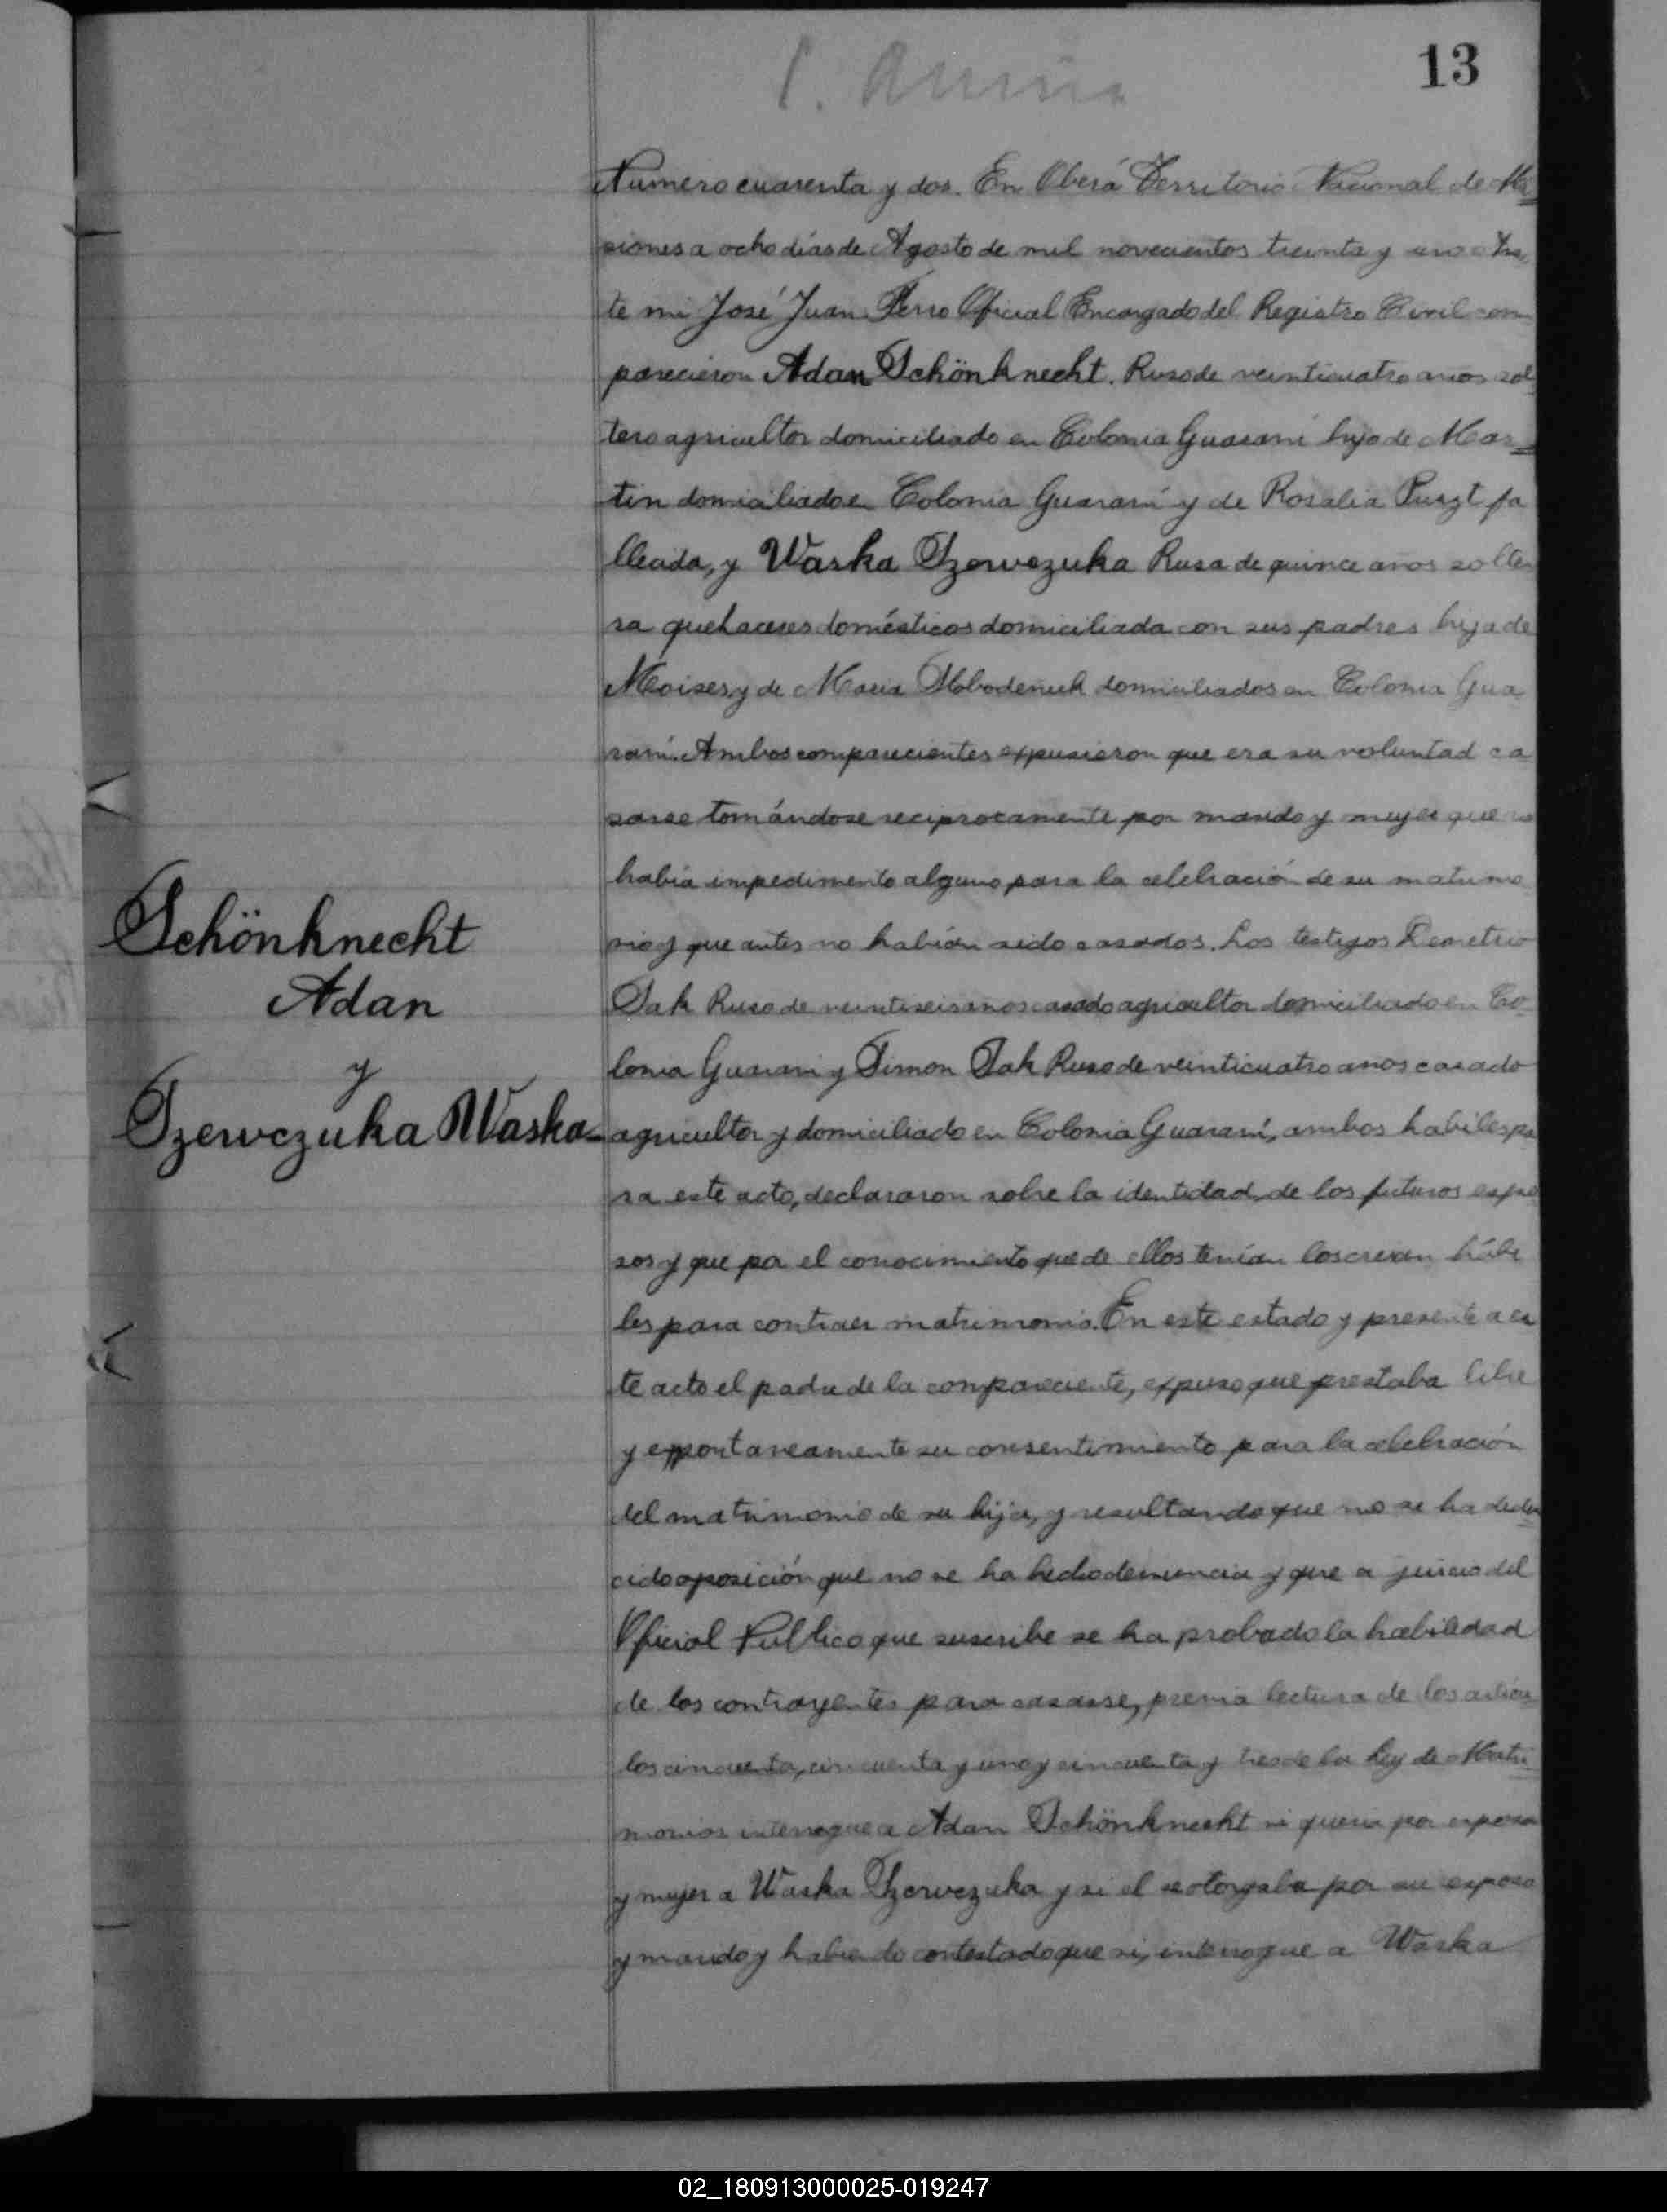 13
Numero cuarenta y dos. En Oberá Territorio Nacional de Mi
siones a ocho días de Agosto de mil novecientos treinta y uno An
te mi José Juan Ferro Oficial Encargado del Registro Civil com
parecieron Adan Schönknecht. Ruso de veinticuatro años sol
tero agricultor domiciliado en Colonia Guaraní hijo de Mar
tin domiciliado en Colonia Guaraní y de Rosalia fa
llecida, y Waska Szewczuka Rusa de quince años solte
ra quehaceres domésticos domiciliada con sus padres hija de
Moises y de Maria domiciliados en Colonia Gua
raní. Ambos comparecientes expusieron que era su voluntad ca
sarse tomándose reciprocamente por marido y mujer que no
había impedimento alguno para la celebración de su matrimo
nio y que antes no habían sido casados. Los testigos Demetrio
Sak Ruso de veintiseis anos casado agricultor domiciliado en Co
lonia Guarani y Simon Sak Ruso de veinticuatro anos casado
agricultor y domiciliado en Colonia Guaraní, ambos habiles pa
ra este acto, declararon sobre la identidad de los futuros espo
sos y que por el conocimiento que de ellos tenían los creian hábi
les para contraer matrimonio. En este estado y presente a es
te acto el padre de la compareciente, expuso que prestaba libre
y expontaneamente su consentimiento para la celebración
del matrimonio de su hija, y resultando que no se ha dedu
cido oposición que no se ha hecho denuncia y que a juicio del
Oficial Publico que suscribe se ha probado la habilidad
de los contrayentes para casarse, previa lectura de los artícu
los cincuenta, cincuenta y uno y cincuenta y tres de la Ley de Matri
monios interrogue a Adan Schönknecht si queria por esposa
y mujer a Waska Szewczuka y si el se otorgaba por su esposo
y marido y habiendo contestado que si, interrogue a Waska
Schönknecht
Adan
y
Szewczuka Waska
02_180913000025-019247